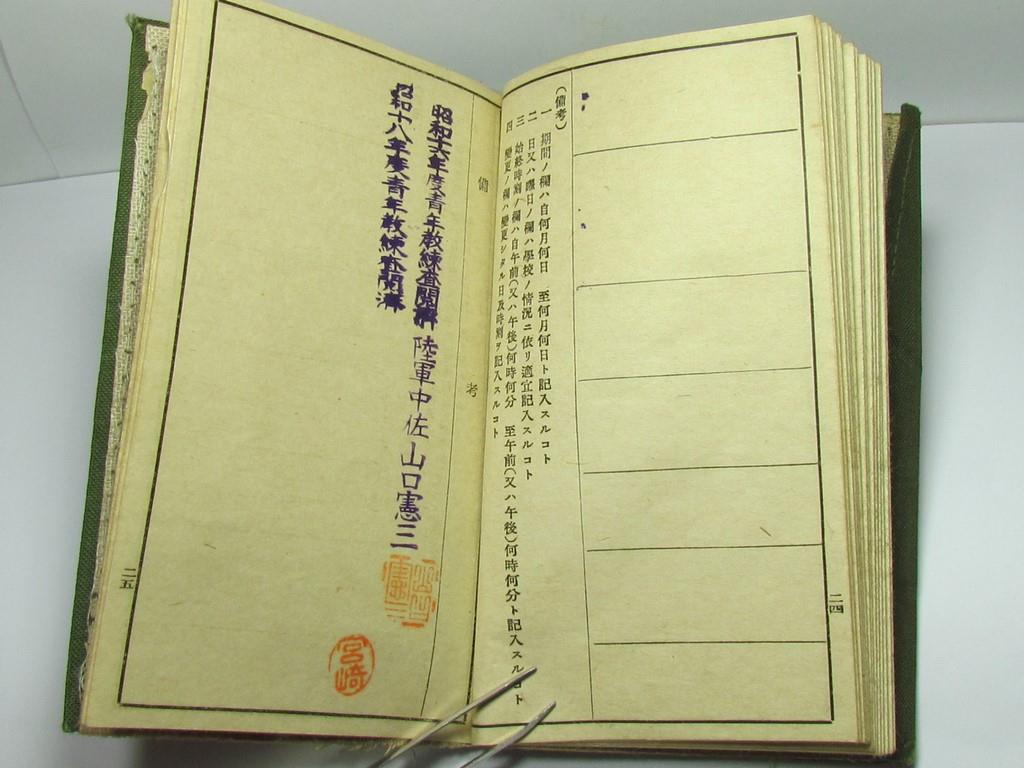 (備考)
一 期間ノ欄ハ自何月何日 至何月何日ト記入スルコト
二 日又ハ曜日ノ欄ハ學校ノ情況ニ依リ適宜記入スルコト
三 始終時刻ノ欄ハ自午前(又ハ午後)何時何分 至午前(又ハ午後)何時何分ト記入スルコト
四 變更ノ欄ハ變更シタル日及時刻ヲ記入スルコト
二四
備考
昭和十六年度青年教練査閲濟 陸軍中佐 山口憲三
昭和十八年度青年教練査閲濟
山口憲三
宮崎
二五